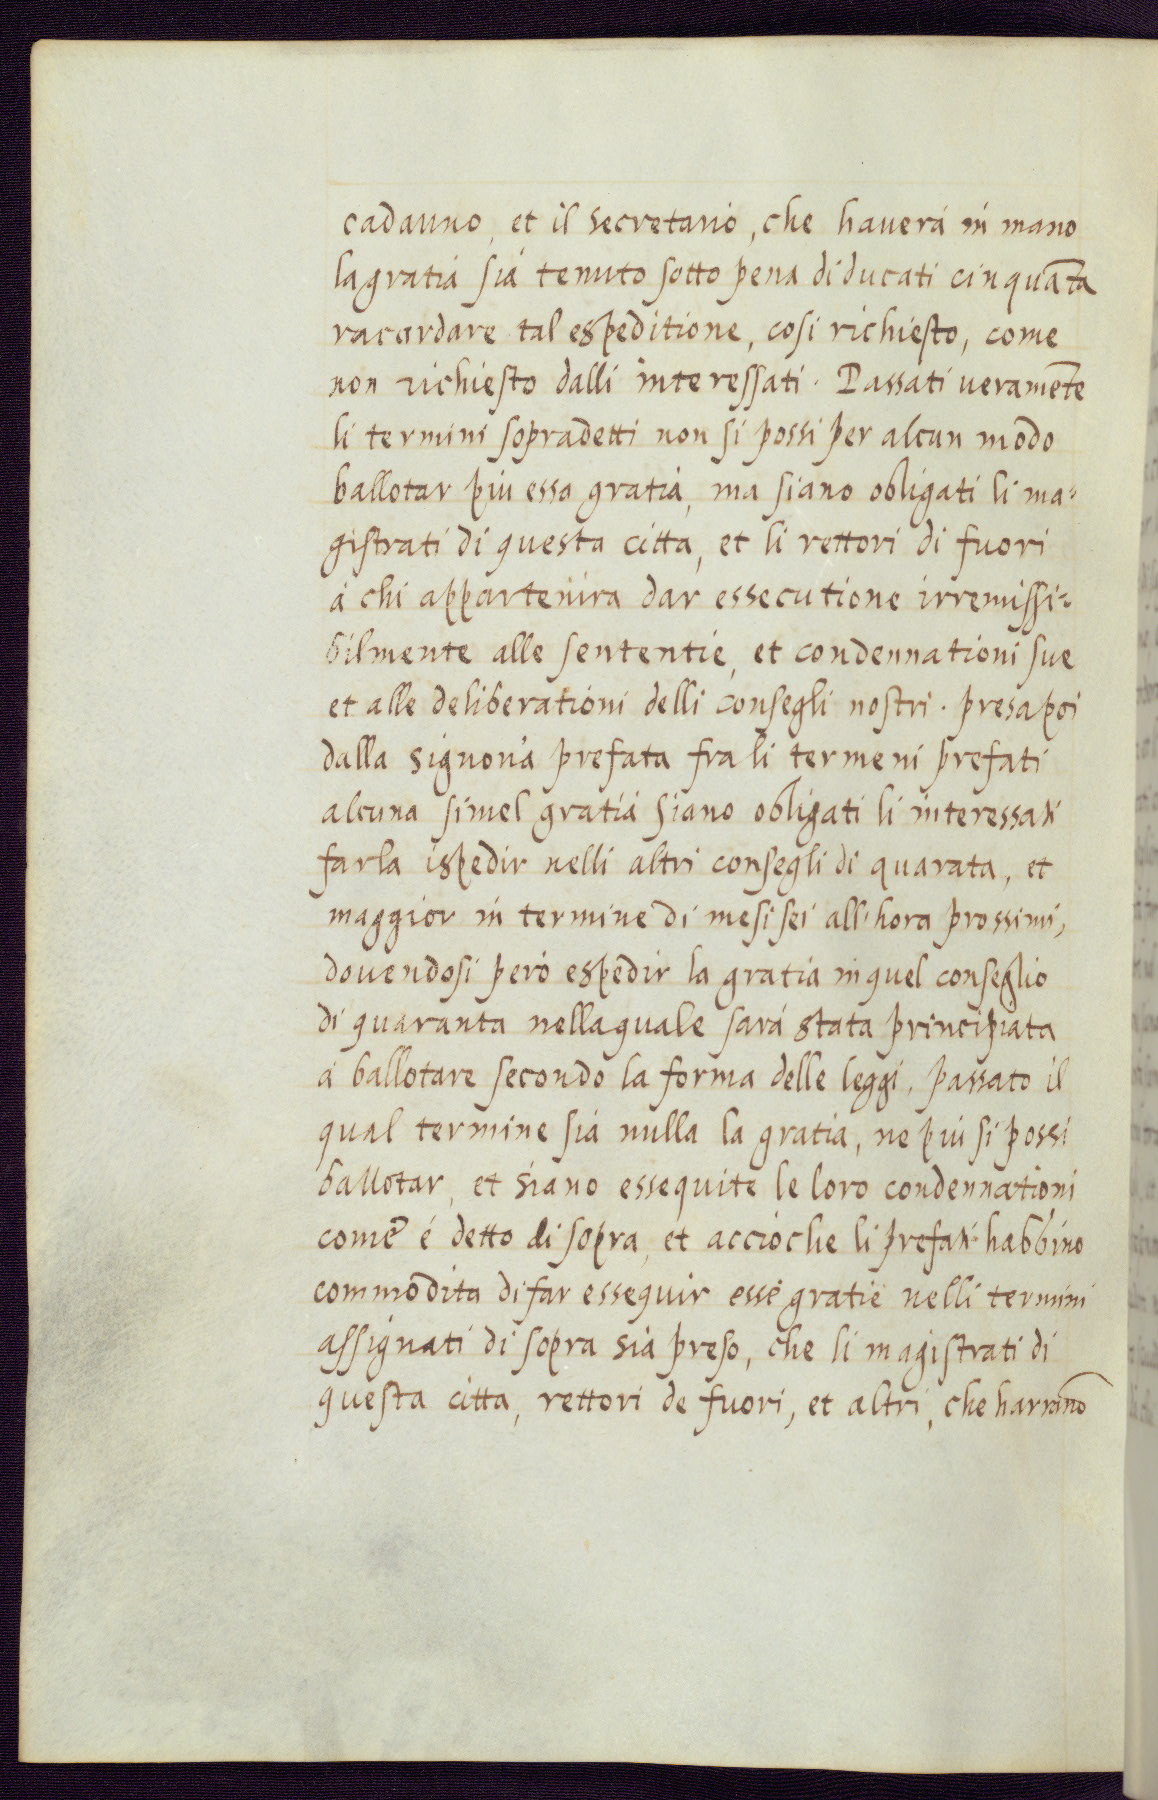 cadauno, et il secretario, che hauerá in mano
la gratia sia tenuto sotto pena di ducati cinquāta
racordare tal espeditione, cosi richiesto, come
non richiesto dalli interessati. Passati veramēte
li termini sopradetti non si possi per alcun modo
ballotar piu essa gratia, ma siano obligati li ma-
gistrati di questa citta, et li rettori di fuori
á chi appartenira dar essecutione irremissi-
bilmente alle sententie, et condennationi sue
et alle deliberationi delli consegli nostri. presa poi
dalla signoria prefata fra li termeni prefati
alcuna simel gratia siano obligati li interessati
farla ispedir nelli altri consegli di quarata, et
maggior in termine di mesi sei all'hora prossimi,
douendosi peró espedir la gratia in quel conseglio
di quaranta nella quale sará stata principiata
á ballotare secondo la forma delle leggi, passato il
qual termine sia nulla la gratia, ne piu si possi
ballotar, et siano essequite le loro condennationi
come é detto di sopra, et accioche li prefati habbino
commodita di far essequir esse gratie nelli termini
assignati di sopra sia preso, che li magistrati di
questa citta, rettori de fuori, et altri, che harrāno